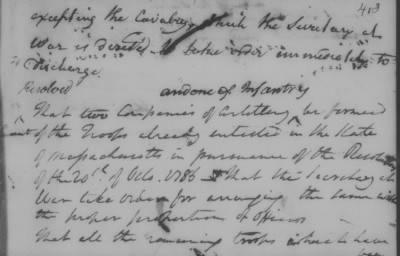 413
excepting the Cavalry which the Secretary at
War is directed to take order immediately to
discharge.
Resolved and one of Infantry
That two Companies of Artillery be formed
out of the Troops already enlisted in the State
of Massachusetts in pursuance of the Resolve
of the 20th of Octo. 1786 That the Secretary at
War take order for arranging the same with
the proper proportion of officers
That all the remaining troops